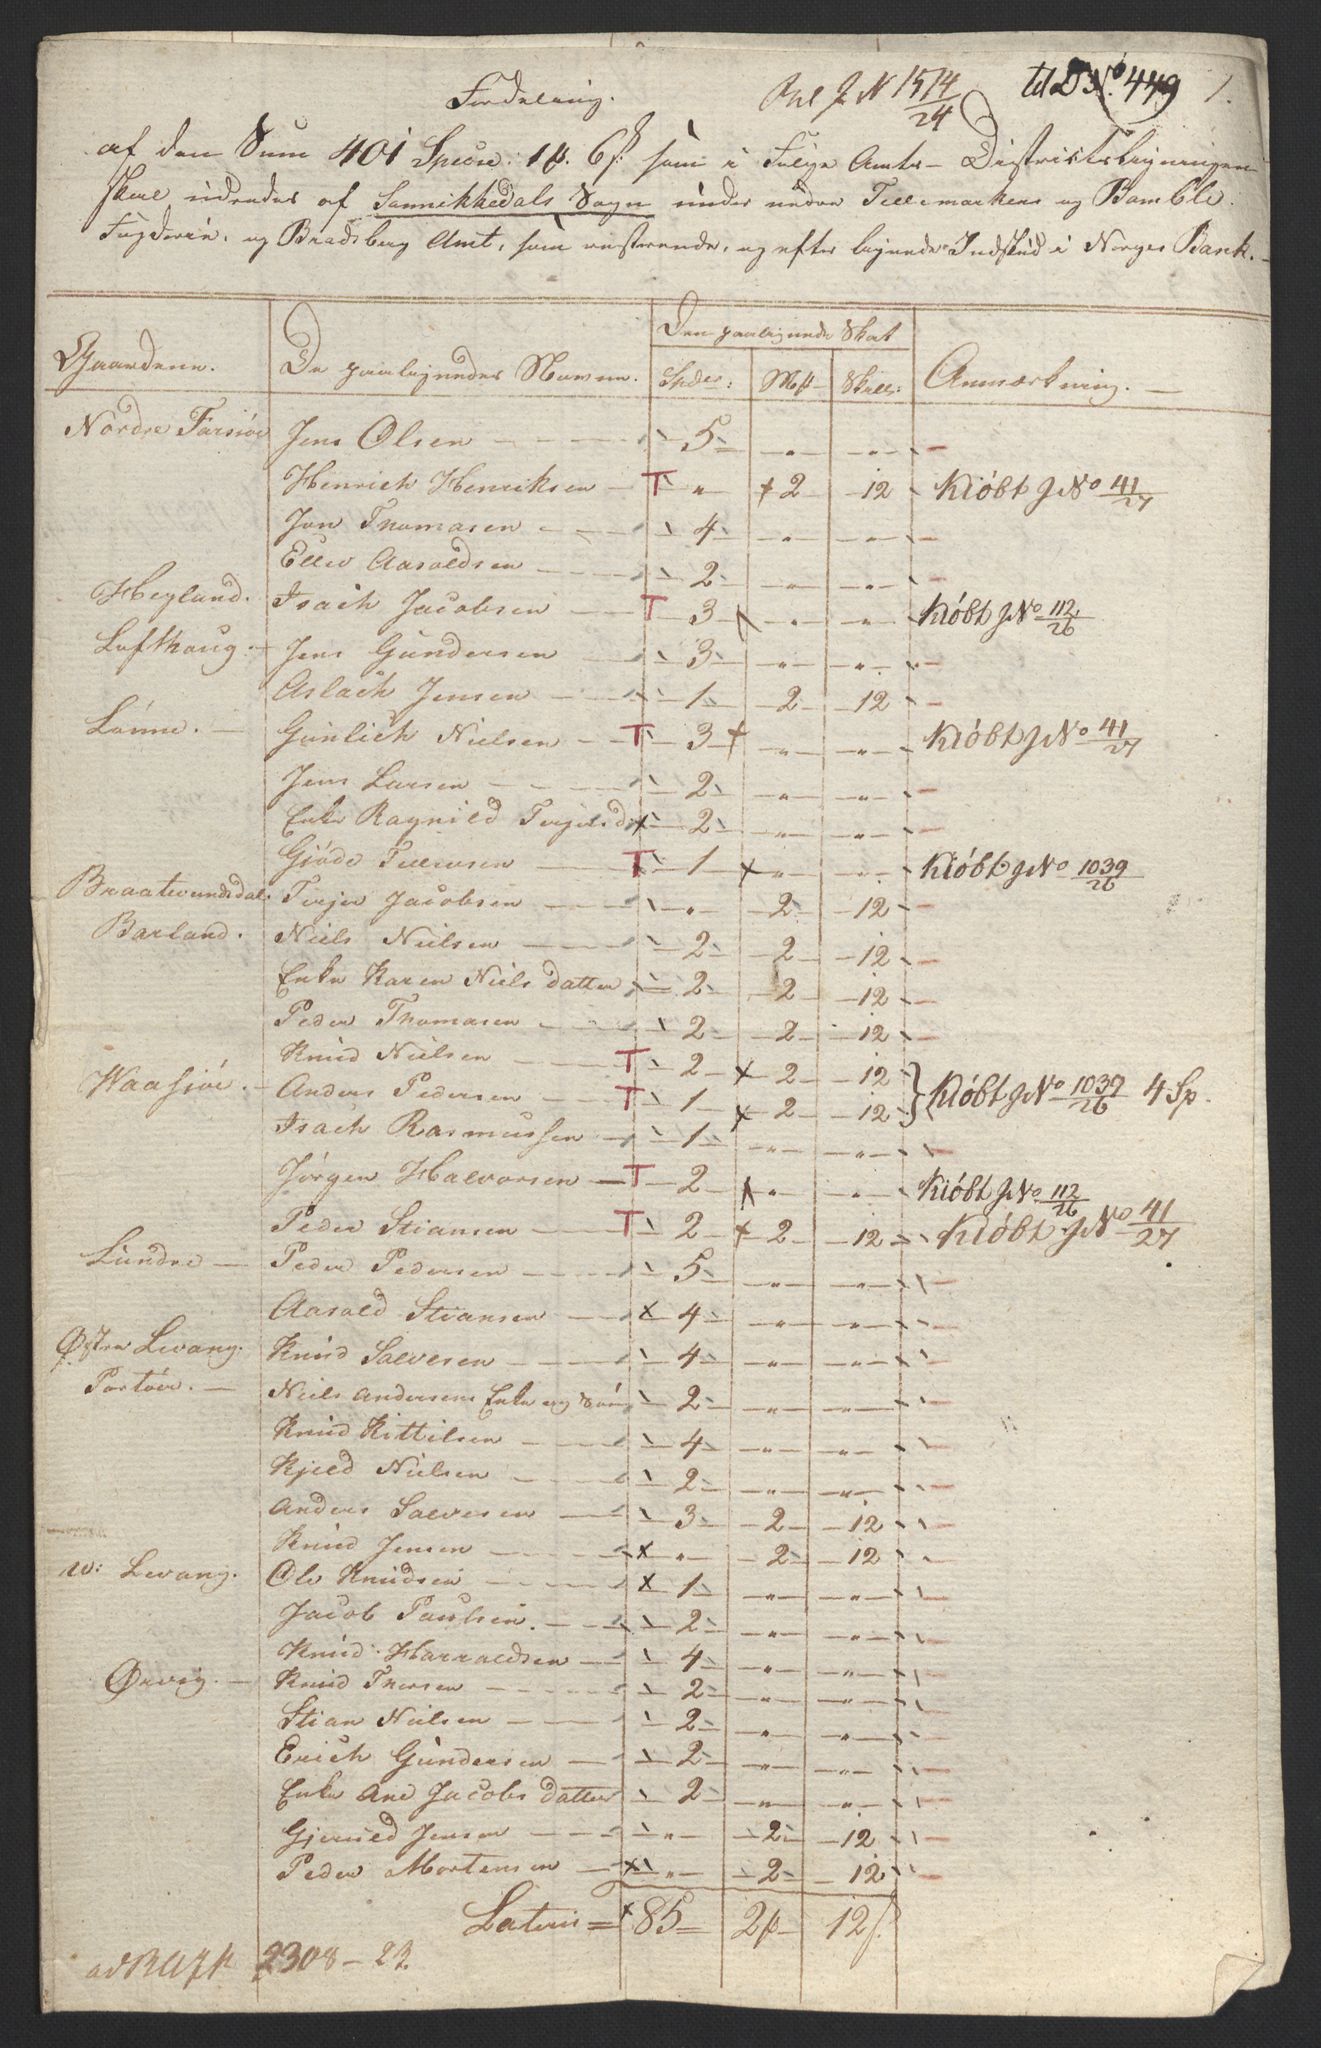 Fordeling. Rul J N 1514/24 til D No. 449 1.
af den Sum 401 Specie: 1 ß. 6 ß: som i Følge Amts- Districtsligningen
skal udredes af Sannikkedals Sogn under nedre Tellemarkens og Bamble
Fogderie, og Bradsberg Amt, som resterende, og efter lignede Indskud i Norges Bank.
Den paalignede Skat
Gaardene. De paalignedes Navne. Spdlr: Mß Skill: Anmærkning.
Nordre Farsiøe Jens Olsen 5 " "
Henrich Henriksen T " + 2 12 Kiöbt JNo 41/27
Jon Thomasen 4 " "
Ellev Aasoldsen 2 " "
Heyland. Isach Jacobsen T 3 " " Kiöbt JNo 112/26
Lofthoug. Jens Gundersen 3 " "
Aslach Jensen 1 2 12
Lønne. Gunlich Nielsen T 3 + " " Kiöbt JNo 41/27
Jens Larsen 2 " "
Enke Ragnild Terjesd x 2 " "
Gjøde Tellevsen T 1 x " " Kiöbt JNo 1039/26
Braatevundsdal Terjer Jacobsen " 2 12
Barland. Niels Nielsen 2 2 12
Enke Karen Niels datter 2 2 12
Peder Thomasen 2 2 12
Knud Nielsen T 2 x 2 12
Waasjøe. Anders Pedersen T 1 x 2 12 } Kiöbt JNo 1037/26 4 Sp.
Isach Rasmussen 1 " "
Jørgen Halvorsen T 2 " " Kiöbt JNo 112/26
Peder Stiansen T 2 + 2 12 Kiöbt JNo 41/27
Lundre Peder Pedersen 5 " "
Aasold Stiansen x 4 " "
Østre Levang. Knud Salvesen 4 " "
Portøer. Niels Andersens Enke og Søn 2 " "
Knud Kittilsen 4 " "
Kjeld Nielsen 2 " "
Anders Salvesen 3 2 12
Knud Jensen x " 2 12
w: Levang. Ole Knudsen x 1 " "
Jacob Paulsen. 2 " "
Knud Harraldsen 4 " "
Ørvig. Knud Thorsen 2 " "
Stian Nielsen 2 " "
Erich Gundersen 2 " "
Enke Ane Jacobs datter 2 " "
Gjeruld Jensen " 2 12
Peder Mortensen x " 2 12
Lateris = x 85 2 ß 12 ß.
2308 - 23.